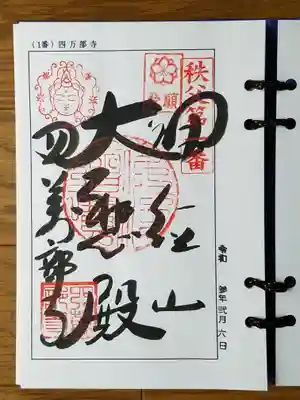 (1番) 四万部寺
秩父第一番
誦経山
大悲殿
四萬部寺
令和 参年 弐月 六日